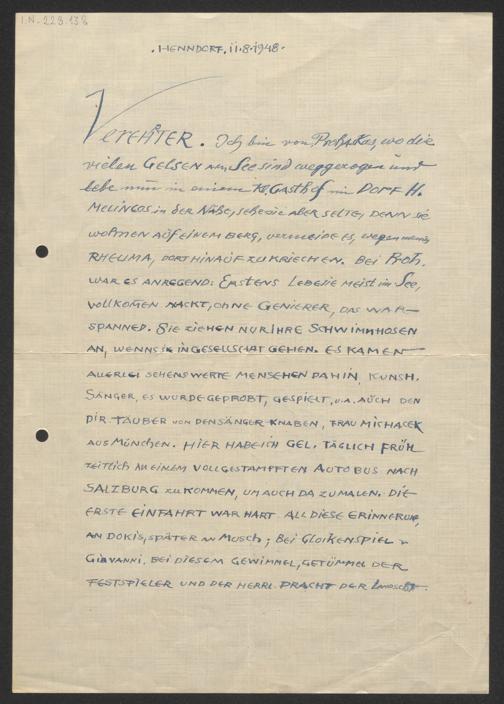 I.N. 229.138
. HENNDORF, 11.8.1948.
VEREHRTER. Ich bin von Proh. Kas, wo die
vielen GELSEN am See sind weggezogen und
lebe nun in einem Gasthof im DORF H.
in der Nähe, sehe sie aber selten, DENN sie
WOHNEN AUF EINEM BERG, vermeide es, wegen meines
RHEUMA, DORT HINAUF ZU KRIECHEN. BEI Proh.
WAR ES ANREGEND: ERSTENS LEBE SIE MEIST IM SEE,
VOLLKOMEN NACKT, OHNE GENIERER, DAS WAR
SPANNED. SIE ZIEHEN NUR IHRE SCHWIMMHOSEN
AN, WENN SIE IN GESELLSCHAFT GEHEN. ES KAMEN
ALLERLEI SEHENSWERTE MENSCHEN DAHIN, KUNSH.
SÄNGER, ES WURDE GEPROBT, GESPIELT, U.A. AUCH DEN
DIR. TAUBER VON DEN SÄNGER-KNABEN, FRAU MICHACEK
AUS MÜNCHEN. HIER HABE ICH GEL. TÄGLICH FRÜH
ZEITLICH IN EINEM VOLLGESTAMPFTEN AUTOBUS NACH
SALZBURG ZU KOMMEN, UM AUCH DA ZU MALEN. DIE
ERSTE EINFAHRT WAR HART. ALL DIESE ERINNERUNG,
AN DOKIS, SPÄTER AN MUSCH; BEI GLOCKENSPIEL u
GIOVANNI, BEI DIESEM GEWIMMEL, GETÜMMEL DER
FESTSPIELER UND DER HERRL. PRACHT DER LANDSCHFT.